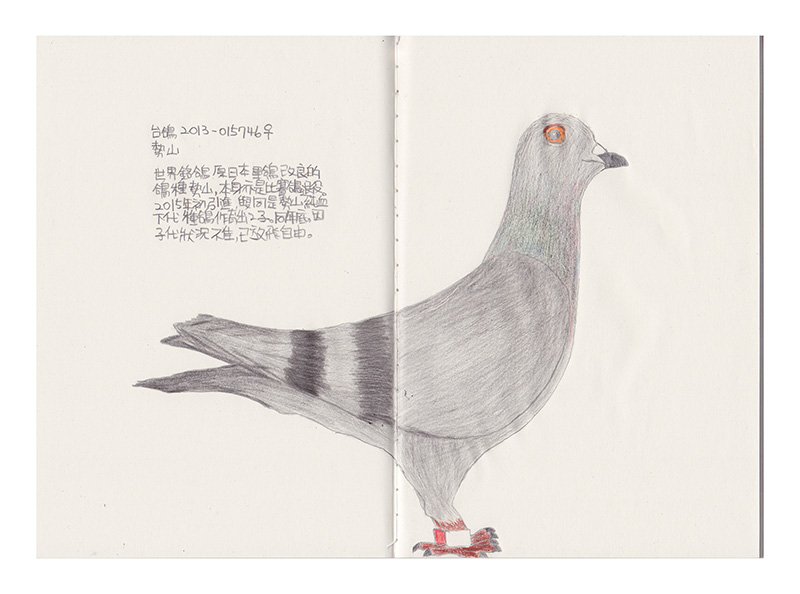 台鴿 2013-015746♀
勢山
世界銘鴿 原日本單鴿改良的
鴿種勢山,本身亦是比賽鴿退役。
2015年初引進,與同是勢山純血
下代雄鴿作育出2子。同年底,因
子代狀況不佳,已放飛自由。